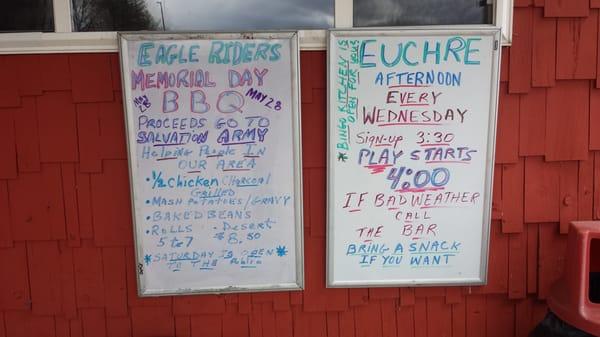 EAGLE RIDERS
MEMORIAL DAY
MAY 28 BBQ MAY 28
PROCEEDS GO TO
SALVATION ARMY
HELPING PEOPLE IN
OUR AREA
• ½ CHICKEN CHARCOAL
GRILLED
• MASH POTATOES/GRAVY
• BAKED BEANS
• ROLLS • DESERT
5 to 7 $8.50
* SATURDAY IS OPEN *
TO THE PUBLIC
BINGO KITCHEN IS
* OPEN FOR YOU
EUCHRE
AFTERNOON
EVERY
WEDNESDAY
SIGN-UP 3:30
PLAY STARTS
4:00
IF BAD WEATHER
CALL
THE BAR
BRING A SNACK
IF YOU WANT